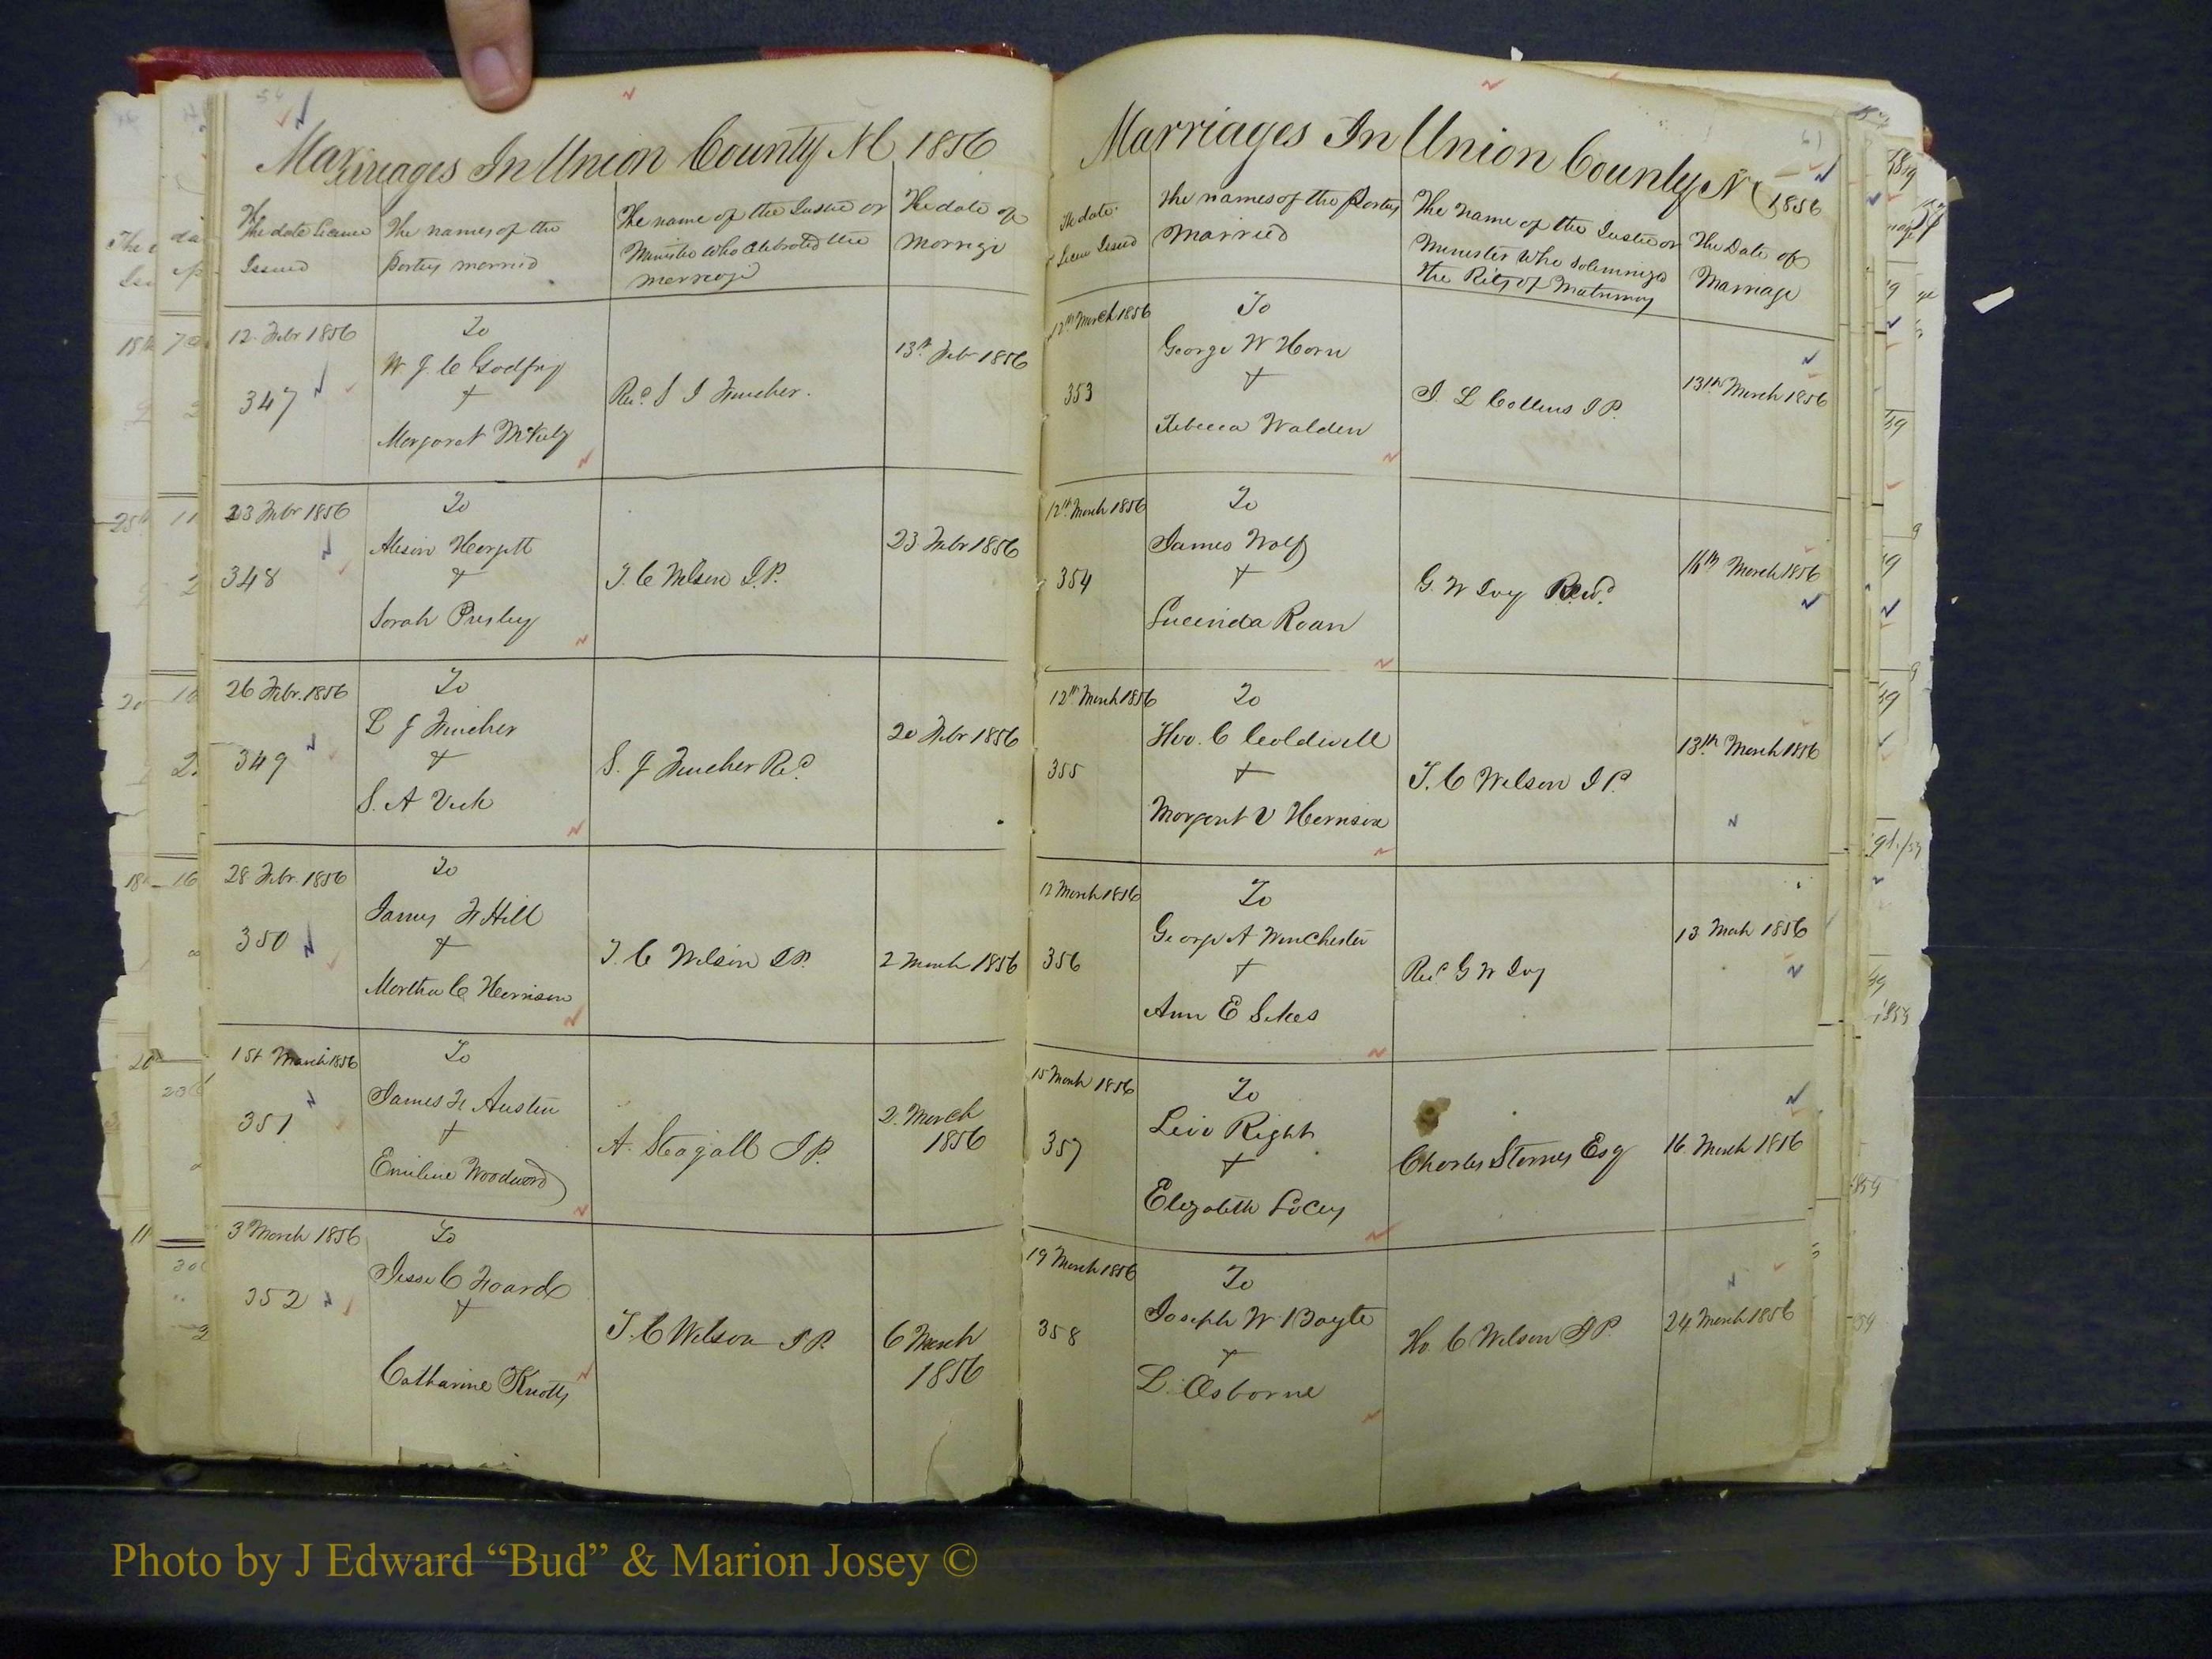 Marriages In Union County NC 1856
The date licence
Issued
The names of the
partys married
The name of the Justice or
Minister who celebrated the
marriage
The date of
Marrige
12 Febr 1856
To
W J C Godfry
+
Margaret
347
Revd S J Fincher.
13th Feb 1856
23 Febr 1856
To
+
Sarah Presley
348
T. C Wilson J.P.
23 Febr 1856
26 Febr. 1856
To
L J Fincher
+
S. A Vick
349
S. J Fincher Revd
20 Febr 1856
28 Febr. 1856
To
James F Hill
+
Martha C Herrison
350
T. C Wilson J.P.
2 March 1856
1st March 1856
To
James F Austin
+
Emiline Woodward
351
A. Steagall J P.
2. March
1856
3 March 1856
To
Jesse C Hoard
+
Catharine Knotts
352
T. C Wilson J P.
6 March
1856
Marriages In Union County N C 1856
The date
Licen Issued
The names of the partys
Married
The name of the Justice or
Minister who solemnized
the Rites of Matrimony
The Date of
Marriage
12th March 1856
To
George W Horn
+
Rebecca Walden
353
J. L Collins J P.
13th March 1856
12th March 1856
To
James Wolf
+
Lucinda Roan
354
G. W Ivy Revd
16th March 1856
12th March 1856
To
C Coldwell
+
Margaret V Herrison
355
T. C Wilson J P.
13th March 1856
12 March 1856
To
George A Winchester
+
Ann E Sikes
356
Revd G W Ivy
13 Mach 1856
15 March 1856
To
Levi Right
+
Elizabeth
357
Charles Starnes Esq
16. March 1856
19 March 1856
To
Joseph W Boyte
+
L. Osborne
358
C Wilson J P
24 March 1856
Photo by J Edward “Bud” & Marion Josey ©